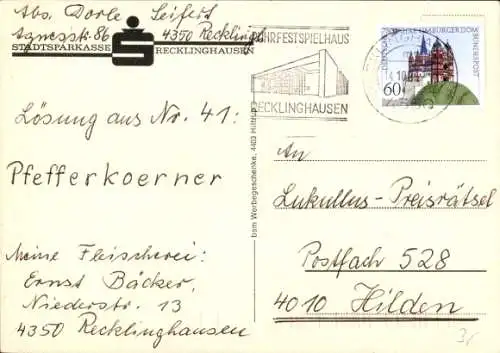 Abs. Dorle Seifert
Agnesstr. 86 4350 Recklinghausen
STADTSPARKASSE RECKLINGHAUSEN
RUHRFESTSPIELHAUS
RECKLINGHAUSEN
LIMBURGER DOM
DEUTSCHE BUNDESPOST
60
Lösung aus Nr. 41:
Pfefferkoerner
Meine Fleischerei:
Ernst Bäcker,
Niederstr. 13
4350 Recklinghausen
bsm Werbegeschenke, 4403 Hiltrup
An
Lukullus-Preisrätsel
Postfach 528
4010 Hilden